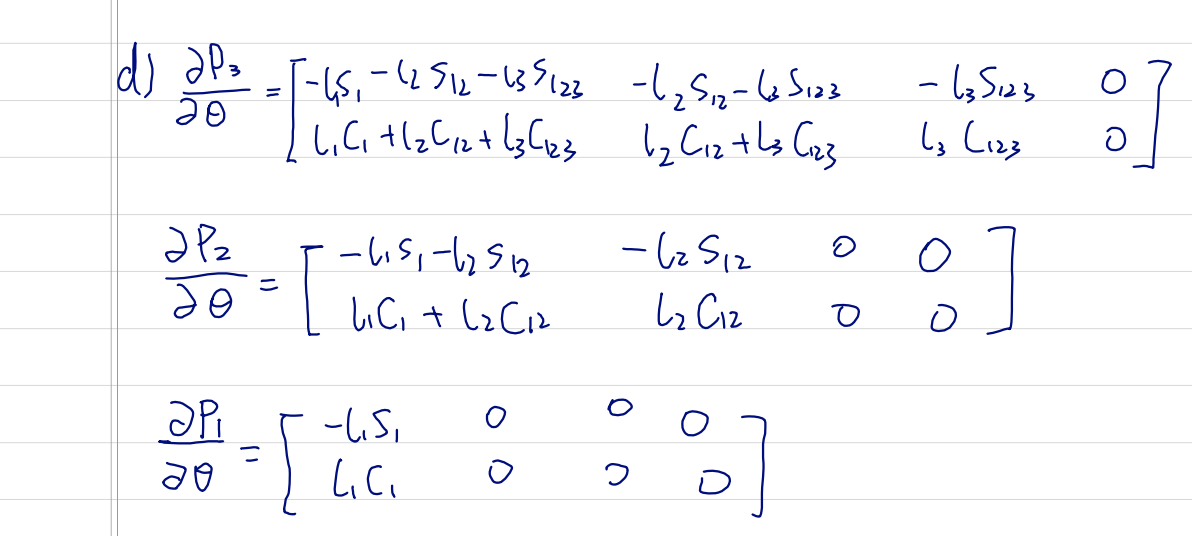 d) ∂P₃/∂θ = [ -l₁S₁ - l₂S₁₂ - l₃S₁₂₃   -l₂S₁₂ - l₃S₁₂₃   -l₃S₁₂₃   0 ]
[ l₁C₁ + l₂C₁₂ + l₃C₁₂₃   l₂C₁₂ + l₃C₁₂₃   l₃C₁₂₃   0 ]
∂P₂/∂θ = [ -l₁S₁ - l₂S₁₂   -l₂S₁₂   0   0 ]
[ l₁C₁ + l₂C₁₂   l₂C₁₂   0   0 ]
∂P₁/∂θ = [ -l₁S₁   0   0   0 ]
[ l₁C₁   0   0   0 ]